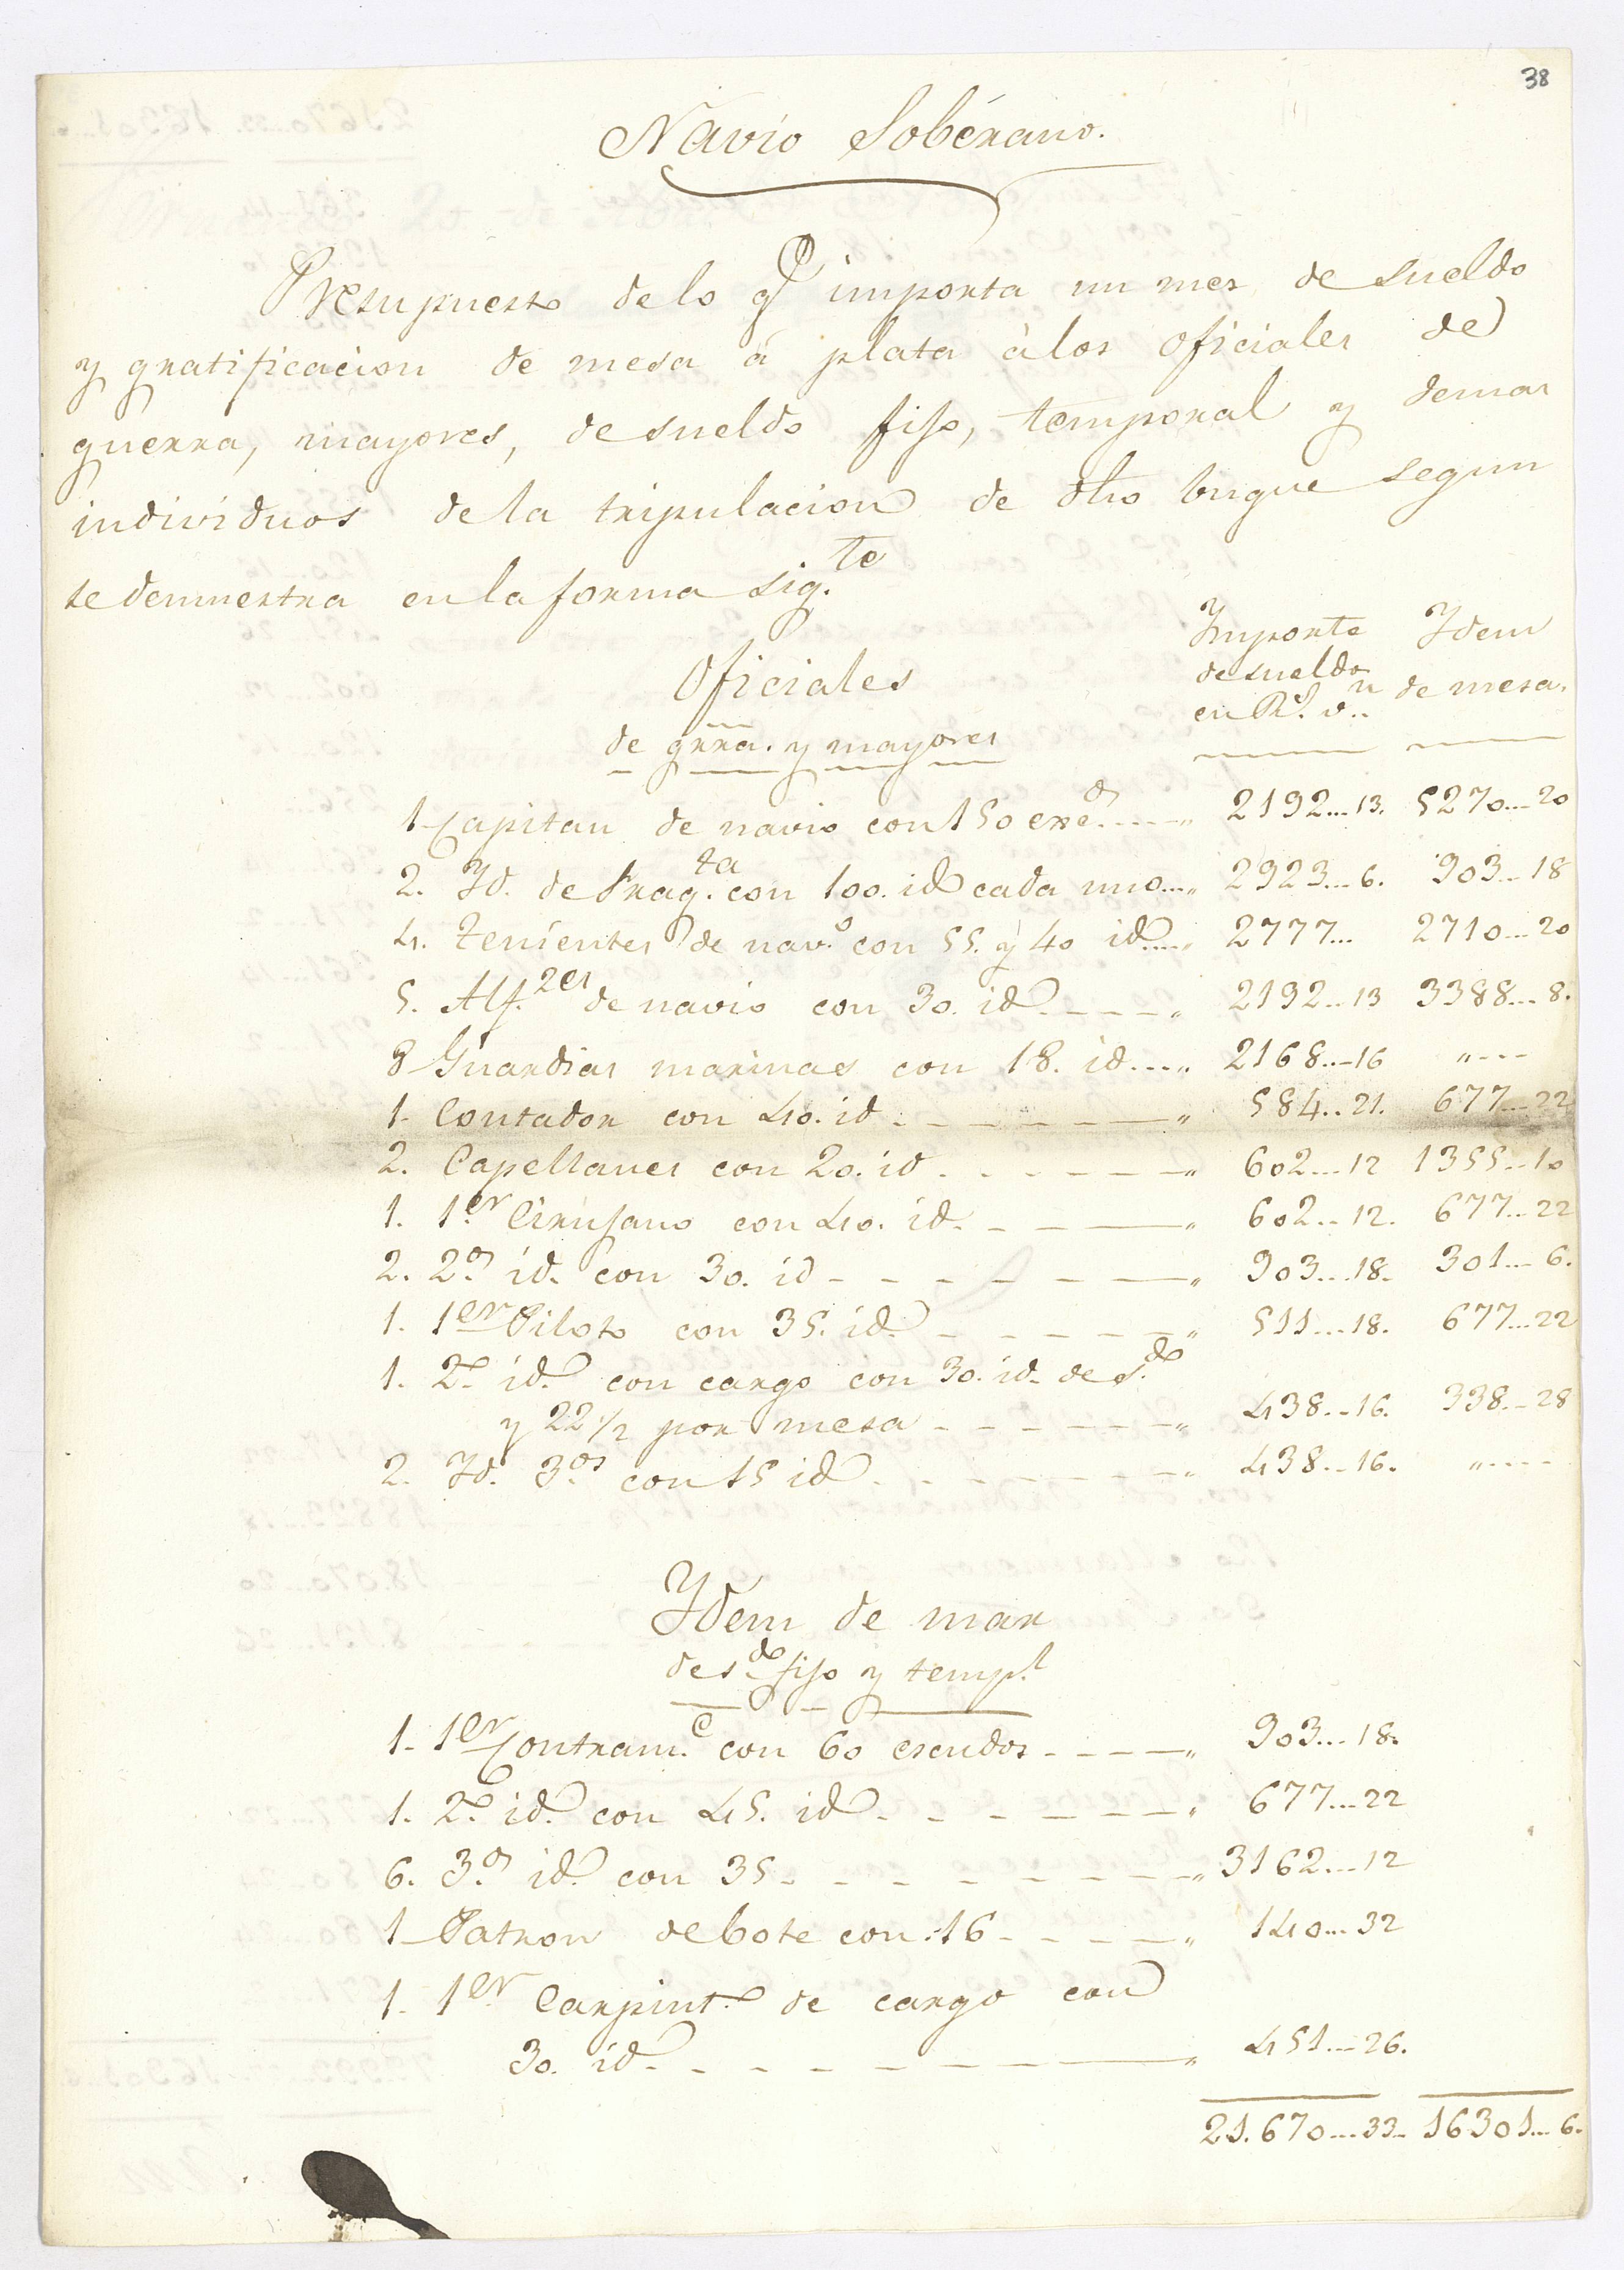 38
Navio Soberano.
Presupuesto de lo q.e importa un mes de sueldo
y gratificacion de mesa á plata à los oficiales de
guerra, mayores, de sueldo fijo, temporal y demas
individuos de la tripulacion de dho buque segun
se demuestra en la forma sig.te
Oficiales
de grra. y mayores
Importe de sueldo en R.s v.n
Idem de mesa.
1 Capitan de navio con 150 exc.s .... " 2192...13. 5270...20
2. Id. de Frag.ta con 100. id cada uno... " 2923...6. 903...18
4. Tenientes de nav.o con 55. y 40 id.... " 2777... 2710...20
5. Alf.zes de navio con 30. id. - - - - " 2192...13 3388...8.
8 Guardias marinas con 18. id.... " 2168...16 " - - -
1. Contador con 40. id - - - - - " 584..21. 677...22
2. Capellanes con 20. id - - - - - " 602...12 1355...10
1. 1.er Cirujano con 40. id. - - - " 602...12. 677...22
2. 2.os id. con 30. id - - - - - - " 903...18. 301...6.
1. 1.er Piloto con 35. id. - - - - - " 511...18. 677...22
1. 2.o id. con cargo con 30. id. de s.do
y 22 1/2 por mesa - - - - - " 438...16. 338...28
2. Id. 3.os con 15 id - - - - - - " 438...16. " - - -
Idem de mar
de s.do fijo y temp.l
1. 1.er Contram.e con 60 escudos - - - - " 903...18.
1. 2.o id. con 45. id - - - - - - " 677...22
6. 3.os id. con 35 - - - - - - - " 3162...12
1 Patron de bote con 16 - - - - " 140...32
1. 1.er Carpint.o de cargo con
30. id. - - - - - - - " 451...26.
21.670...33. 16301...6.